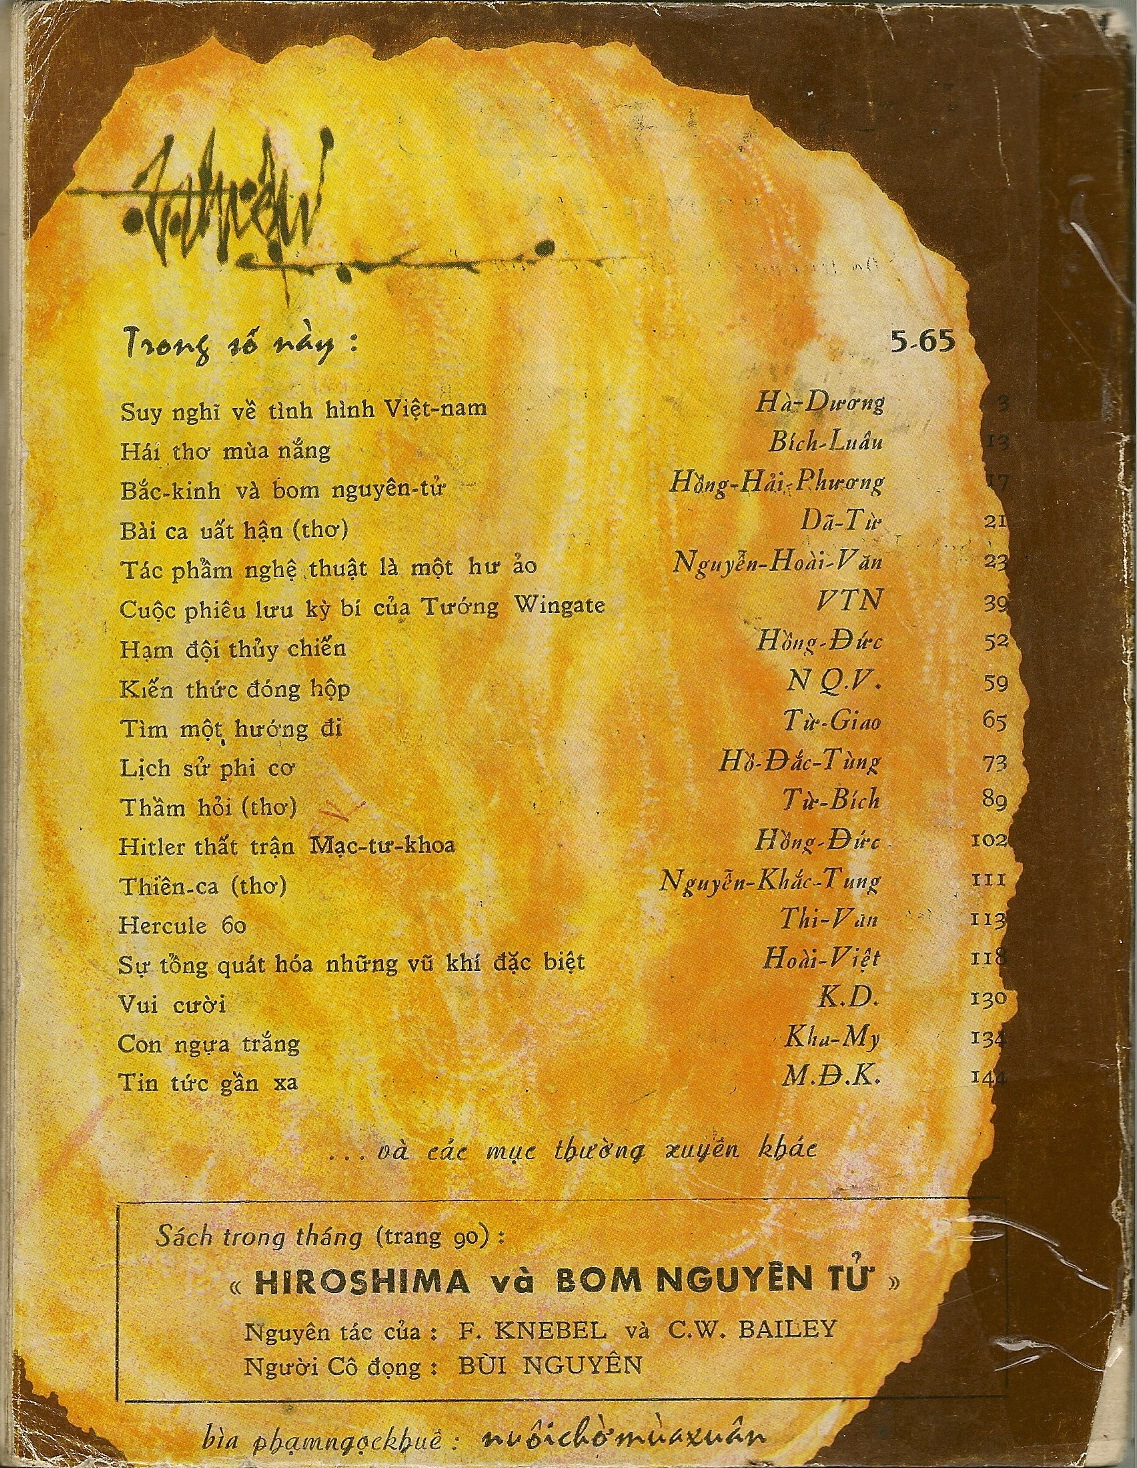 Trong số này : 5-65
Suy nghĩ về tình hình Việt-nam Hà-Dương 3
Hái thơ mùa nắng Bích-Luân 13
Bắc-kinh và bom nguyên-tử Hồng-Hải-Phương 17
Bài ca uất hận (thơ) Dã-Từ 21
Tác phẩm nghệ thuật là một hư ảo Nguyễn-Hoài-Văn 23
Cuộc phiêu lưu kỳ bí của Tướng Wingate VTN 39
Hạm đội thủy chiến Hồng-Đức 52
Kiến thức đóng hộp N Q.V. 59
Tìm một hướng đi Từ-Giao 65
Lịch sử phi cơ Hồ-Đắc-Tùng 73
Thầm hỏi (thơ) Từ-Bích 89
Hitler thất trận Mạc-tư-khoa Hồng-Đức 102
Thiên-ca (thơ) Nguyễn-Khắc-Tung 111
Hercule 60 Thi-Văn 113
Sự tổng quát hóa những vũ khí đặc biệt Hoài-Việt 118
Vui cười K.D. 130
Con ngựa trắng Kha-My 134
Tin tức gần xa M.Đ.K. 144
... và các mục thường xuyên khác
Sách trong tháng (trang 90) :
« HIROSHIMA và BOM NGUYÊN TỬ »
Nguyên tác của : F. KNEBEL và C.W. BAILEY
Người Cô đọng : BÙI NGUYÊN
bìa phạmngọckhuê : nuôichờmùaxuân